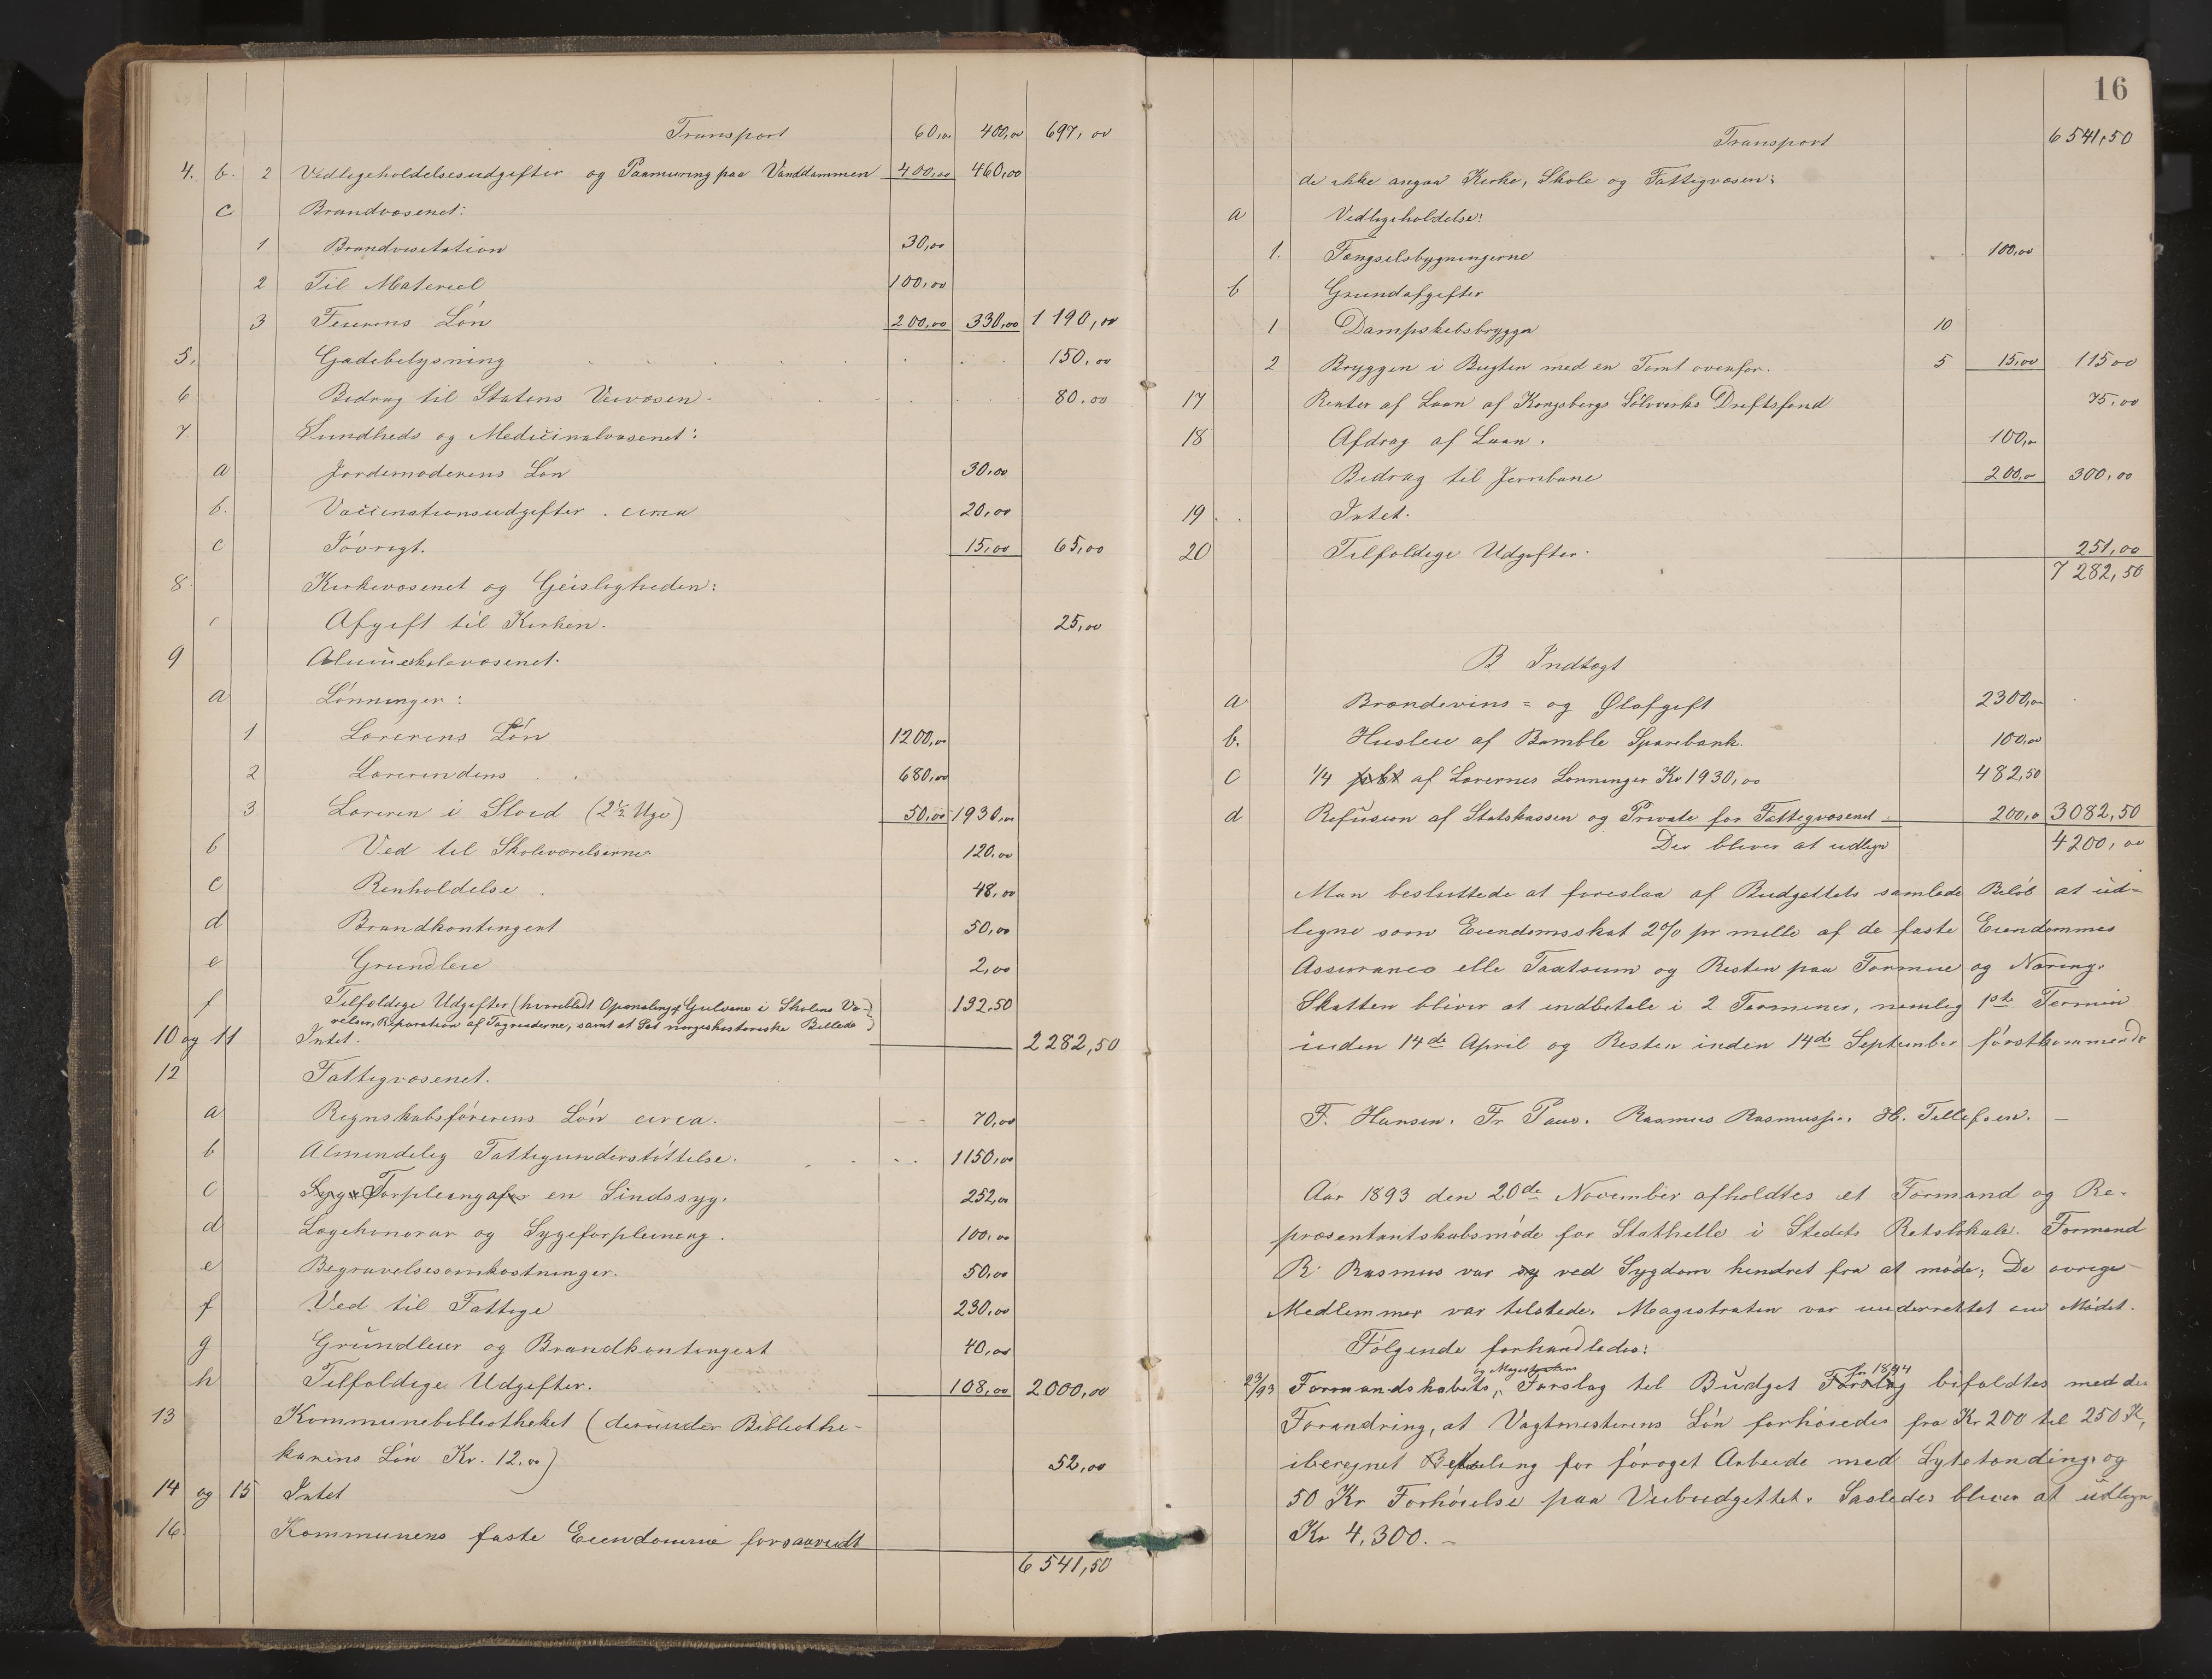 Transport 60,00 400,00 697,00
4. b. 2 Vedligeholdelsesudgifter og Paamuring paa Vanddammen 400,00 460,00
c Brandvæsenet:
1 Brandvisitation 30,00
2 Til Materiel 100,00
3 Feierens Løn 200,00 330,00 1190,00
5. Gadebelysning 150,00
6 Bidrag til Statens Veivæsen 80,00
7. Sundheds og Medicinalvæsenet:
a Jordemoderens Løn 30,00
b. Vaccinationsudgifter. circa 20,00
c Iøvrigt. 15,00 65,00
8 Kirkevæsenet og Geistligheden:
Afgift til Kirken. 25,00
9 Almueskolevæsenet.
a Lønninger:
1 Lærerens Løn 1200,00
2 Lærerindens 680,00
3 Læreren i Sloed (2½ Uge) 50,00 1930,00
b Ved til Skoleværelserne 120,00
c Renholdelse 48,00
d Brandkontingent 50,00
e Grundleie 2,00
f Tilfældige Udgifter (hvoriblandt Opmaling af Gulvene i Skolens Væ- 132,50
relser, Reparation af Tagrenderne, samt et Sæt norgeshistoriske Billeder)
10 og 11 Intet. 2282,50
12 Fattigvæsenet.
a Regnskabsførerens Løn circa. 70,00
b Almindelig Fattigunderstøttelse. 1150,00
c Forpleining af en Sindssyg. 252,00
d Lægehonorar og Sygeforpleining. 100,00
e Begravelsesomkostninger. 50,00
f Ved til Fattige 230,00
g Grundleier og Brandkontingent 40,00
h Tilfældige Udgifter. 108,00 2000,00
13 Kommunebibliotheket (derunder Bibliothe-
karens Løn Kr. 12.00) 52,00
14 og 15 Intet
16. Kommunens faste Eiendomme forsaavidt
6541,50
16
Transport 6541,50
de ikke angaa Kirke, Skole og Fattigvæsen:
a Vedligeholdelse:
1. Fængselsbygningerne 100,00
b Grundafgifter
1 Dampskibsbrygga 10
2 Bryggen i Bugten med en Tomt ovenfor. 5 15,00 115 00
17 Renter af Laan af Kongsbergs Sølvverks Driftsfond 75,00
18 Afdrag af Laan. 100,00
Bidrag til Jernbane 200,00 300,00
19 Intet.
20 Tilfældige Udgifter. 251,00
7282,50
B Indtægt
a Brændevins- og Ølafgift 2300,00
b. Husleie af Bamble Sparebank. 100,00
c 1/4 af Lærernes Lønninger Kr 1930,00 482,50
d Refusion af Statskassen og Private for Fattigvæsenet. 200,0 3082,50
Der bliver at udligne 4200,00
Man besluttede at foreslaa af Budgettets samlede Beløb at ud-
ligne som Eiendomsskat 2% pr mille af de faste Eiendommes
Assurance elle Taxtsum og Resten paa Formue og Næring.
Skatten bliver at indbetale i 2 Terminer, nemlig 1ste Termin
inden 14de April og Resten inden 14de September førstkommende
F. Hansen. Fr Paus. Rasmus Rasmussen. H. Tellefsen. —
Aar 1893 den 20de November afholdtes et Formand og Re-
præsentantskabsmøde for Stathelle i Stedets Retslokale. Formand
R. Rasmus var sy ved Sygdom hindret fra at møde; De øvrige
Medlemmer var tilstede. Magistraten var underrettet om Mødet.
Følgende forhandledes:
23/93 Formandskabets, og Magistratens Forslag til Budget Forslag for 1894 bifaldtes med den
Forandring, at Vagtmesterens Løn forhøiedes fra Kr 200 til 250 K,
iberegnet Betaling for forøget Arbeide med Lygtetænding, og
50 Kr Forhøielse paa Veibudgettet. Saaledes bliver at udligne
Kr 4,300. —